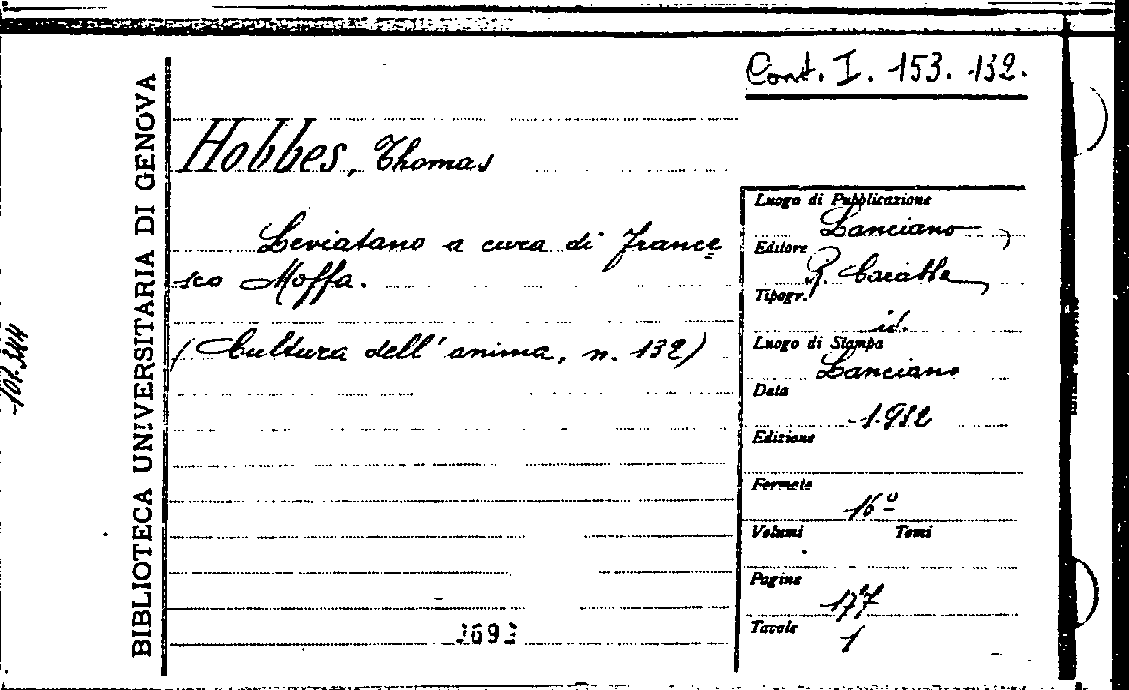 Cont. I. 153. 132.
BIBLIOTECA UNIVERSITARIA DI GENOVA
Hobbes, Thomas
Leviatano a cura di France=
sco Moffa.
(Cultura dell'anima, n. 132)
Luogo di Pubblicazione
Lanciano,
Editore
Carabba,
Tipogr.
id.
Luogo di Stampa
Lanciano
Data
Edizione
Formato
16º
Volumi Tomi
Pagine
177
Tavole
1